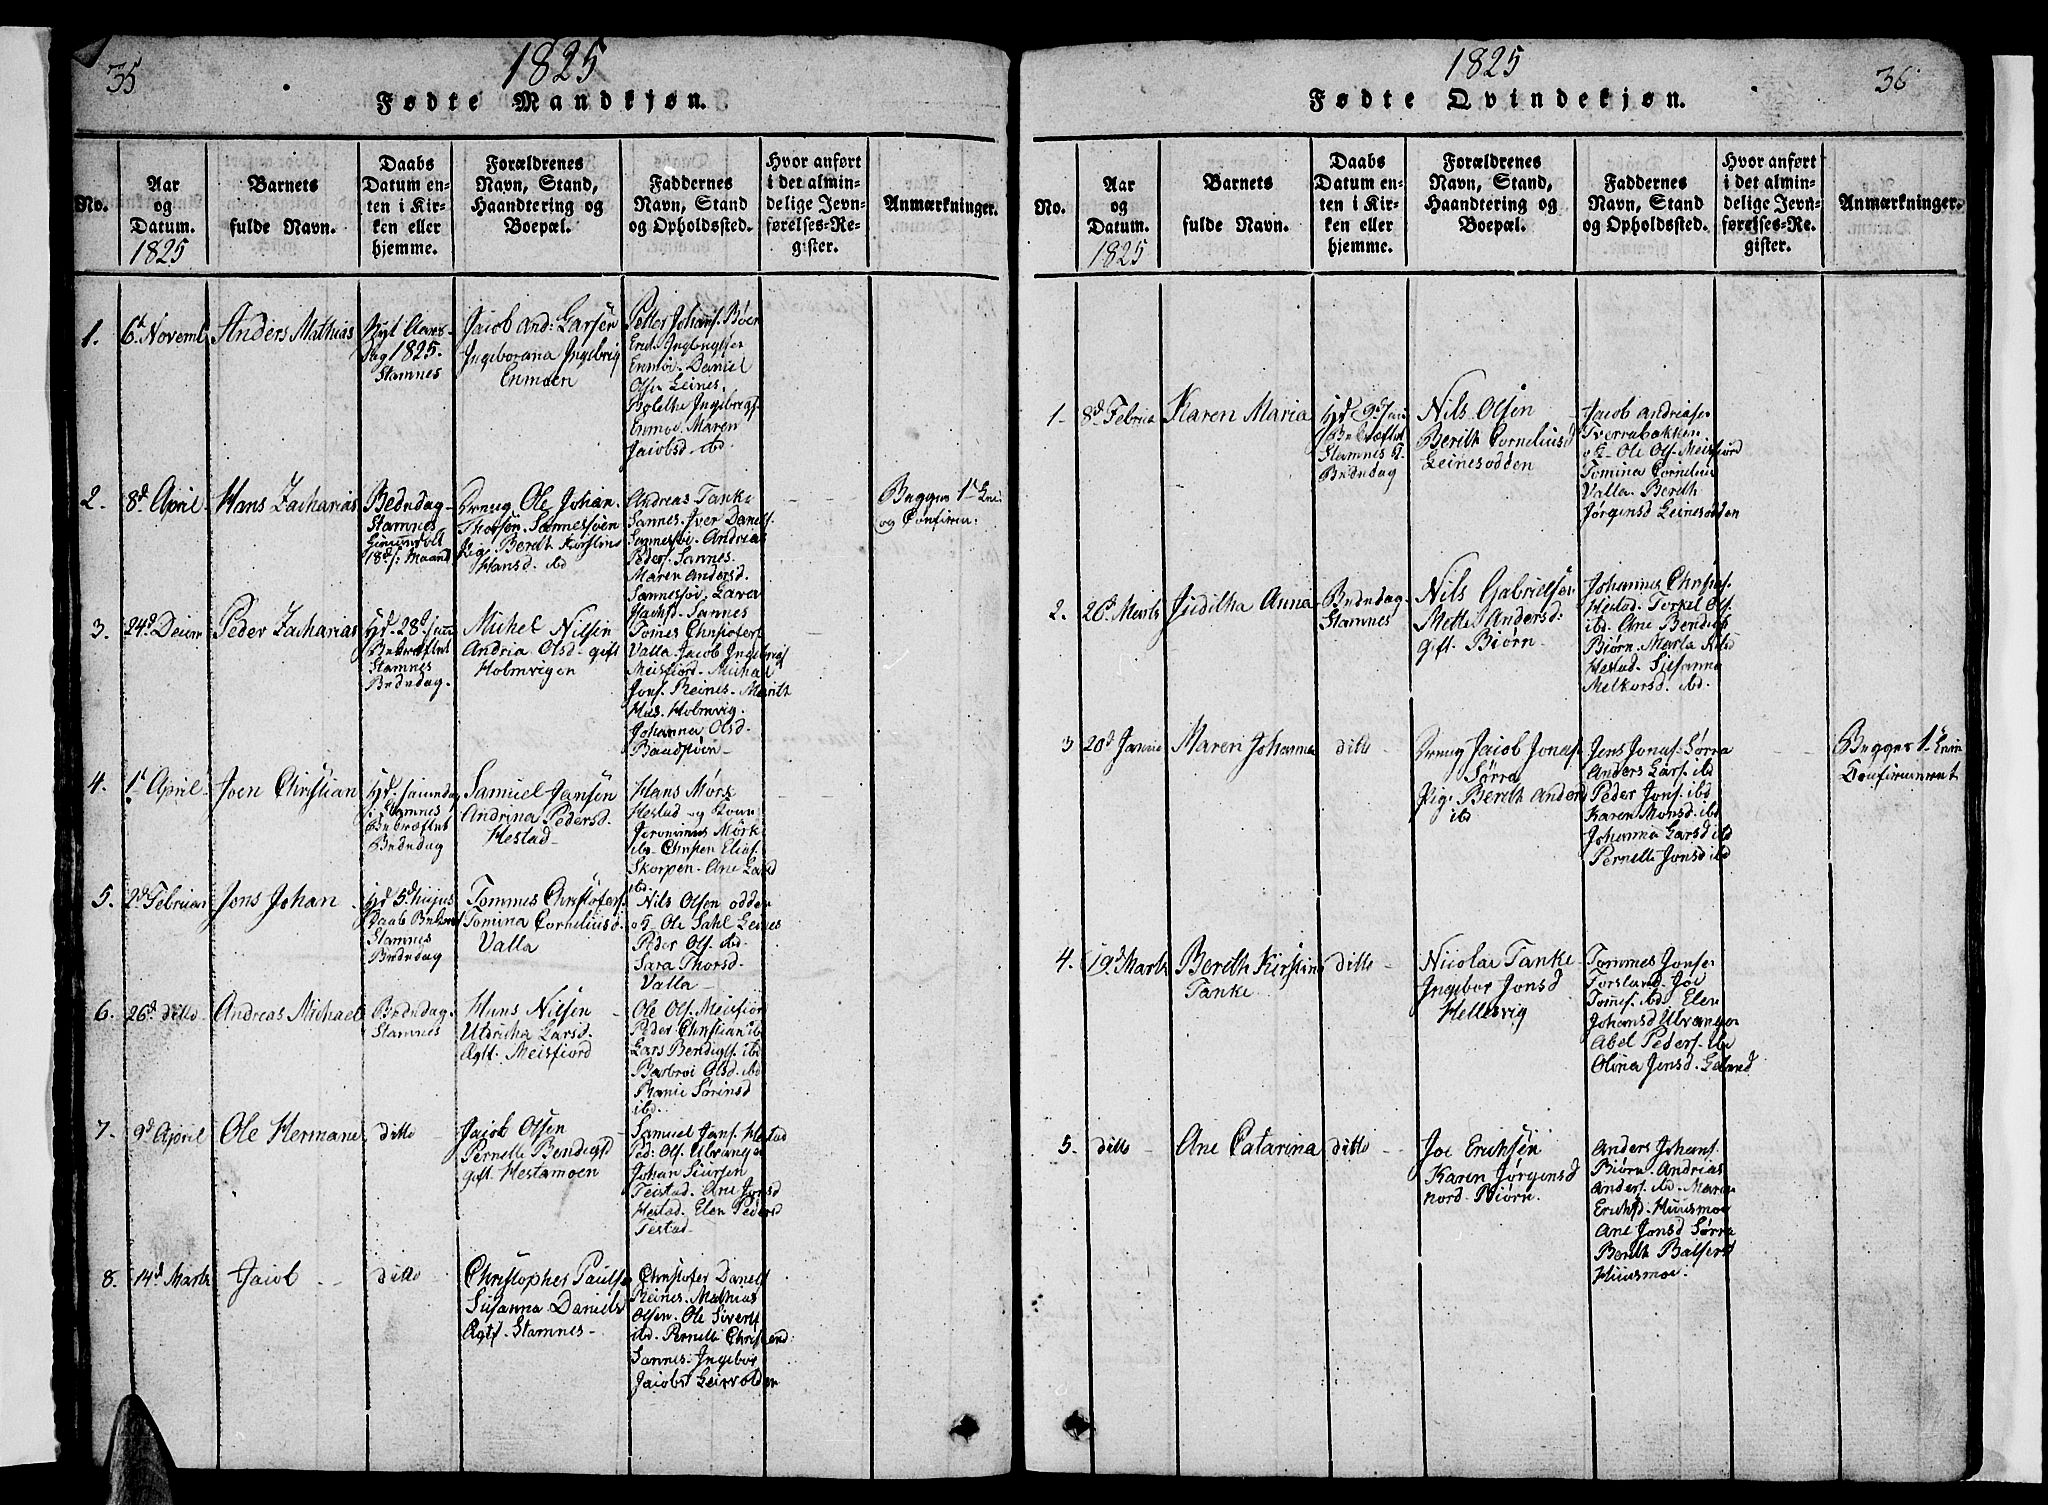 35
1825
Fødte Mandkjøn.
No.
Aar
og
Datum.
1825
Barnets
fulde Navn.
Daabs
Datum en-
ten i Kir-
ken eller
hjemme.
Forældrenes
Navn, Stand,
Haandtering og
Boepæl.
Faddernes
Navn, Stand
og Opholdssted.
Hvor anført
i det almin-
delige Jevn-
førelses-Re-
gister.
Anmærkninger.
1.
6t Novemb
Anders Mathias
Nyt Aars-
dag 1825.
Stamnes
Jacob And: Larsen
Ingeborana Ingebrig
Enmoen
Petter Johans. Bøen
Enmoe. Daniel
Ols. Leines.
Bolethe Ingebrigs.
Enmoe. Maren
Jacobsd. ibd
2.
8d April
Hans Zacharias
Bededag
Stamnes
18d
Ole Johan
Thorsen. Sannessøen
Pig. Berith Kirstine
Hansd. ibd
Andreas Tanke
Sannes. Iver Danels.
Sannessøe. Andreas
Peders. Sannes
Maren Andersd.
Sannessøe. Lava
Sannes
Begges 1t
og Confirm:
3.
24d Decem
Peder Zacharias
Hd. 28d
Bekræftet
Stamnes
Bededag.
Michel Nilsen
Andria Olsd. gift
Holmvigen
Tomes Christofers
Valla. Jacob Ingebrigs
Meisfiord. Michael
Jons. Reines. Merith
Holmvig.
Johanna Olsd.
4.
1t April
Joen Christian
Stamnes
Bekræftet
Bededag
Samuel Jansen
Andrina Pedersd.
Hestad
Hans Mørk
Hestad og
Jeronimus Mørk
ibd. Chrsten Elias.
Skorpen. Ane Larsd
ibd.
5.
2d Februar
Jens Johan
Hd 5d hujus
Daab
Stamnes
Bededag
Tommes Christofers.
Tomina Corneliusd.
Valla
Nils Olsen odden
Ole Dahl Leines
Peder Ols. ibd.
Sara Thorsd.
Valla
6.
26d ditto
Andreas Michael
Bededag.
Stamnes
Hans Nilsen
Uldricha Larsd.
Ægt. Meisfiord
Ole Ols. Meisfior
Peder Christian ib
Lars Bendigts. ibd
Barbroe Olsd. ibd
Sørensd
ibd.
7.
9d April
Ole Hermann
ditto
Jacob Olsen
Pernelle Bendigtd
gift. Hestamoen
Samuel Jans. Hestad
Ped: Ols. Ulvangen
Johan Siursen
Teistad. Ane Jonsd
Hestad. Elen Pedersd
Testad
8.
14d Marts
Jacob
ditto
Christopher Pauls
Susanna Daniels
Ægtf. Stamnes
Christofer Danels
Reines. Mathias
Olsen. Ole Siverts
ibd. Pernelle Christend:
Sannes. Ingebor
Jacobs Leirvolden
36
1825
Fødte Qvindekjøn.
No.
Aar
og
Datum.
1825
Barnets
fulde Navn.
Daabs
Datum en-
ten i Kir-
ken eller
hjemme.
Forældrenes
Navn, Stand,
Haandtering og
Boepæl.
Faddernes
Navn, Stand
og Opholdssted.
Hvor anført
i det almin-
delige Jevn-
førelses-Re-
gister.
Anmærkninger.
1.
8d Februa
Karen Maria
Hd 9d
Bekræftet
Stamnes
Bededag
Nils Olsen
Berith Corneliusd
Leinesodden
Jacob Andriasen
Tverrabakken
Ole Ols. Meisfiord
Tomina Cornelius
Valla. Berith
Jørgensd Leinesodden
2.
26d Marts
Judilha Anna
Bededag
Stamnes
Nils Gabrielsen
Mette Andersd:
gift. Biørn
Johannes Chrstofs.
Hestad. Torkel Ols.
ibd. Ane Bendigts
Biørn. Marta
Hestad. Susanna
Melkorsd. ibd.
3
20d Janua
Maren Johanna
ditto
Jacob Jonas.
Sørra
Pig. Berith Andersd
ibd
Jens Jonas. Sørra
Anders Lars. ibd
Peder Jons. ibd
Karen Monsd. ibd
Johanna Larsd ibd
Pernelle Jonsd ibd
Begges 1t
Confirmeret
4.
19d Marts
Berith Kirstine
Tanke
ditto
Nicolai Tanke
Ingebor Jonsd
Hellesvig
Tommes Jonsen
Forsland. Joe
Tomes. ibd Elen
Johansd Ulvangen
Abel Peders. ibd
Olina Jensd. Leland
5.
ditto
Ane Catarina
ditto
Joe Erichsen
Karen Jørgensd
nord. Biørn.
Anders Johans.
Biørn. Andrias
Anders. ibd. Maren
Erichsd. Huusmoe
Ane Jonsd Sørra
Berith Baltsersd
Huusmoe.